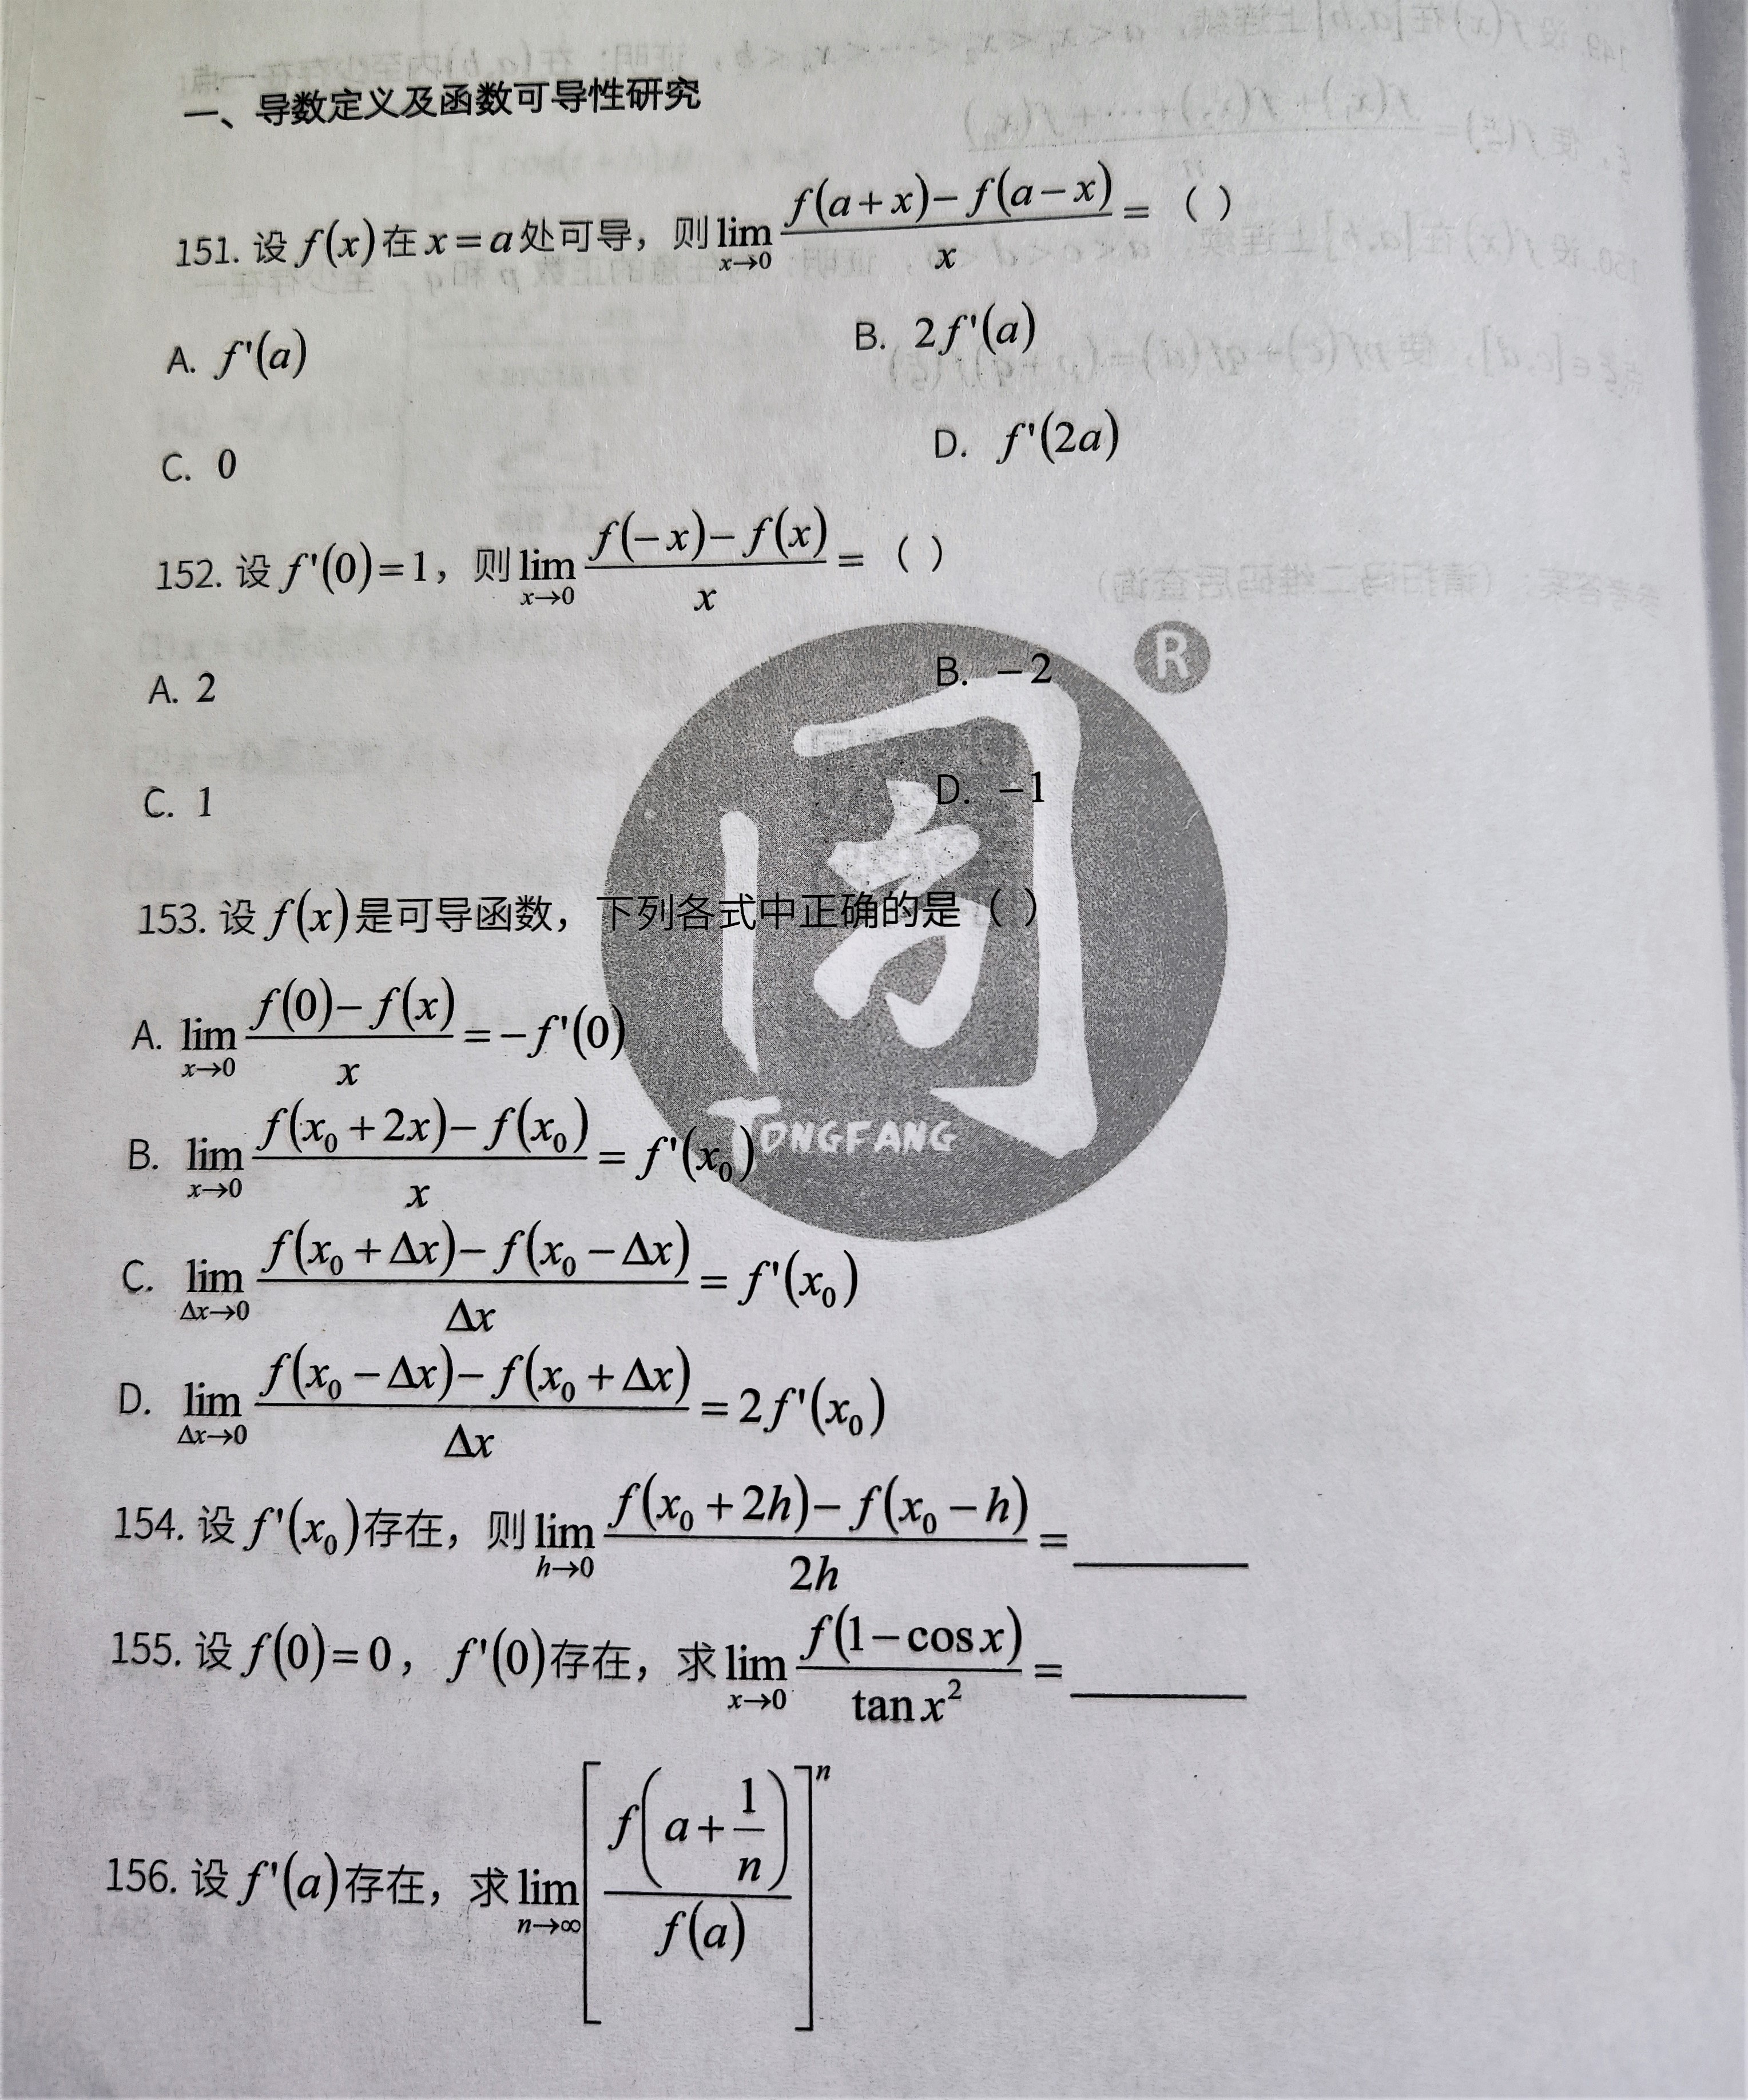 一、导数定义及函数可导性研究
151. 设 f(x) 在 x=a 处可导，则 lim x→0 f(a+x)−f(a−x) / x = （ ）
A. f'(a) B. 2f'(a)
C. 0 D. f'(2a)
152. 设 f'(0)=1，则 lim x→0 f(−x)−f(x) / x = （ ）
A. 2 B. −2
C. 1 D. −1
153. 设 f(x) 是可导函数，下列各式中正确的是（ ）
A. lim x→0 f(0)−f(x) / x = −f'(0)
B. lim x→0 f(x₀+2x)−f(x₀) / x = f'(x₀)
C. lim Δx→0 f(x₀+Δx)−f(x₀−Δx) / Δx = f'(x₀)
D. lim Δx→0 f(x₀−Δx)−f(x₀+Δx) / Δx = 2f'(x₀)
154. 设 f'(x₀) 存在，则 lim h→0 f(x₀+2h)−f(x₀−h) / 2h = ______
155. 设 f(0)=0，f'(0) 存在，求 lim x→0 f(1−cos x) / tan x² = ______
156. 设 f'(a) 存在，求 lim n→∞ [ f(a+1/n) / f(a) ]ⁿ
TONGFANG
®